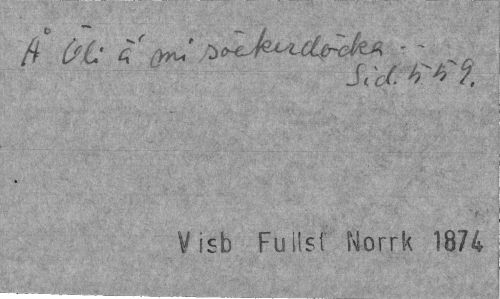 Å Öli ä' mi söckerdocka ...
Sid. 559.
Visb Fullst Norrk 1874